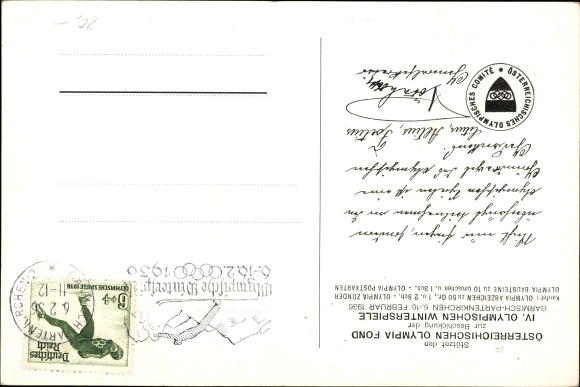 Stützet den
ÖSTERREICHISCHEN OLYMPIA FOND
zur Beschickung der
IV. OLYMPISCHEN WINTERSPIELE
GARMISCH-PARTENKIRCHEN 6.-16 FEBRUAR 1936
Kaufet: OLYMPIA ABZEICHEN zu 50 Gr. 1 u. 2 Sch. - OLYMPIA ZÜNDER
OLYMPIA BAUSTEINE zu 10 Groschen u. 1 Sch. - OLYMPIA POSTKARTEN
siegen, sondern
teilnehmen an den
Olympischen Spielen ist eine
des olympischen
Citius, Altius, Fortius
Generalsekretär
ÖSTERREICHISCHES OLYMPISCHES COMITÉ
Deutsches
Reich
6+4
OLYMPISCHE SPIELE 1936
PARTENKIRCHEN 2
6.2.36
11-12
Olympische Winterspiele
6-16.2.1936
20,-